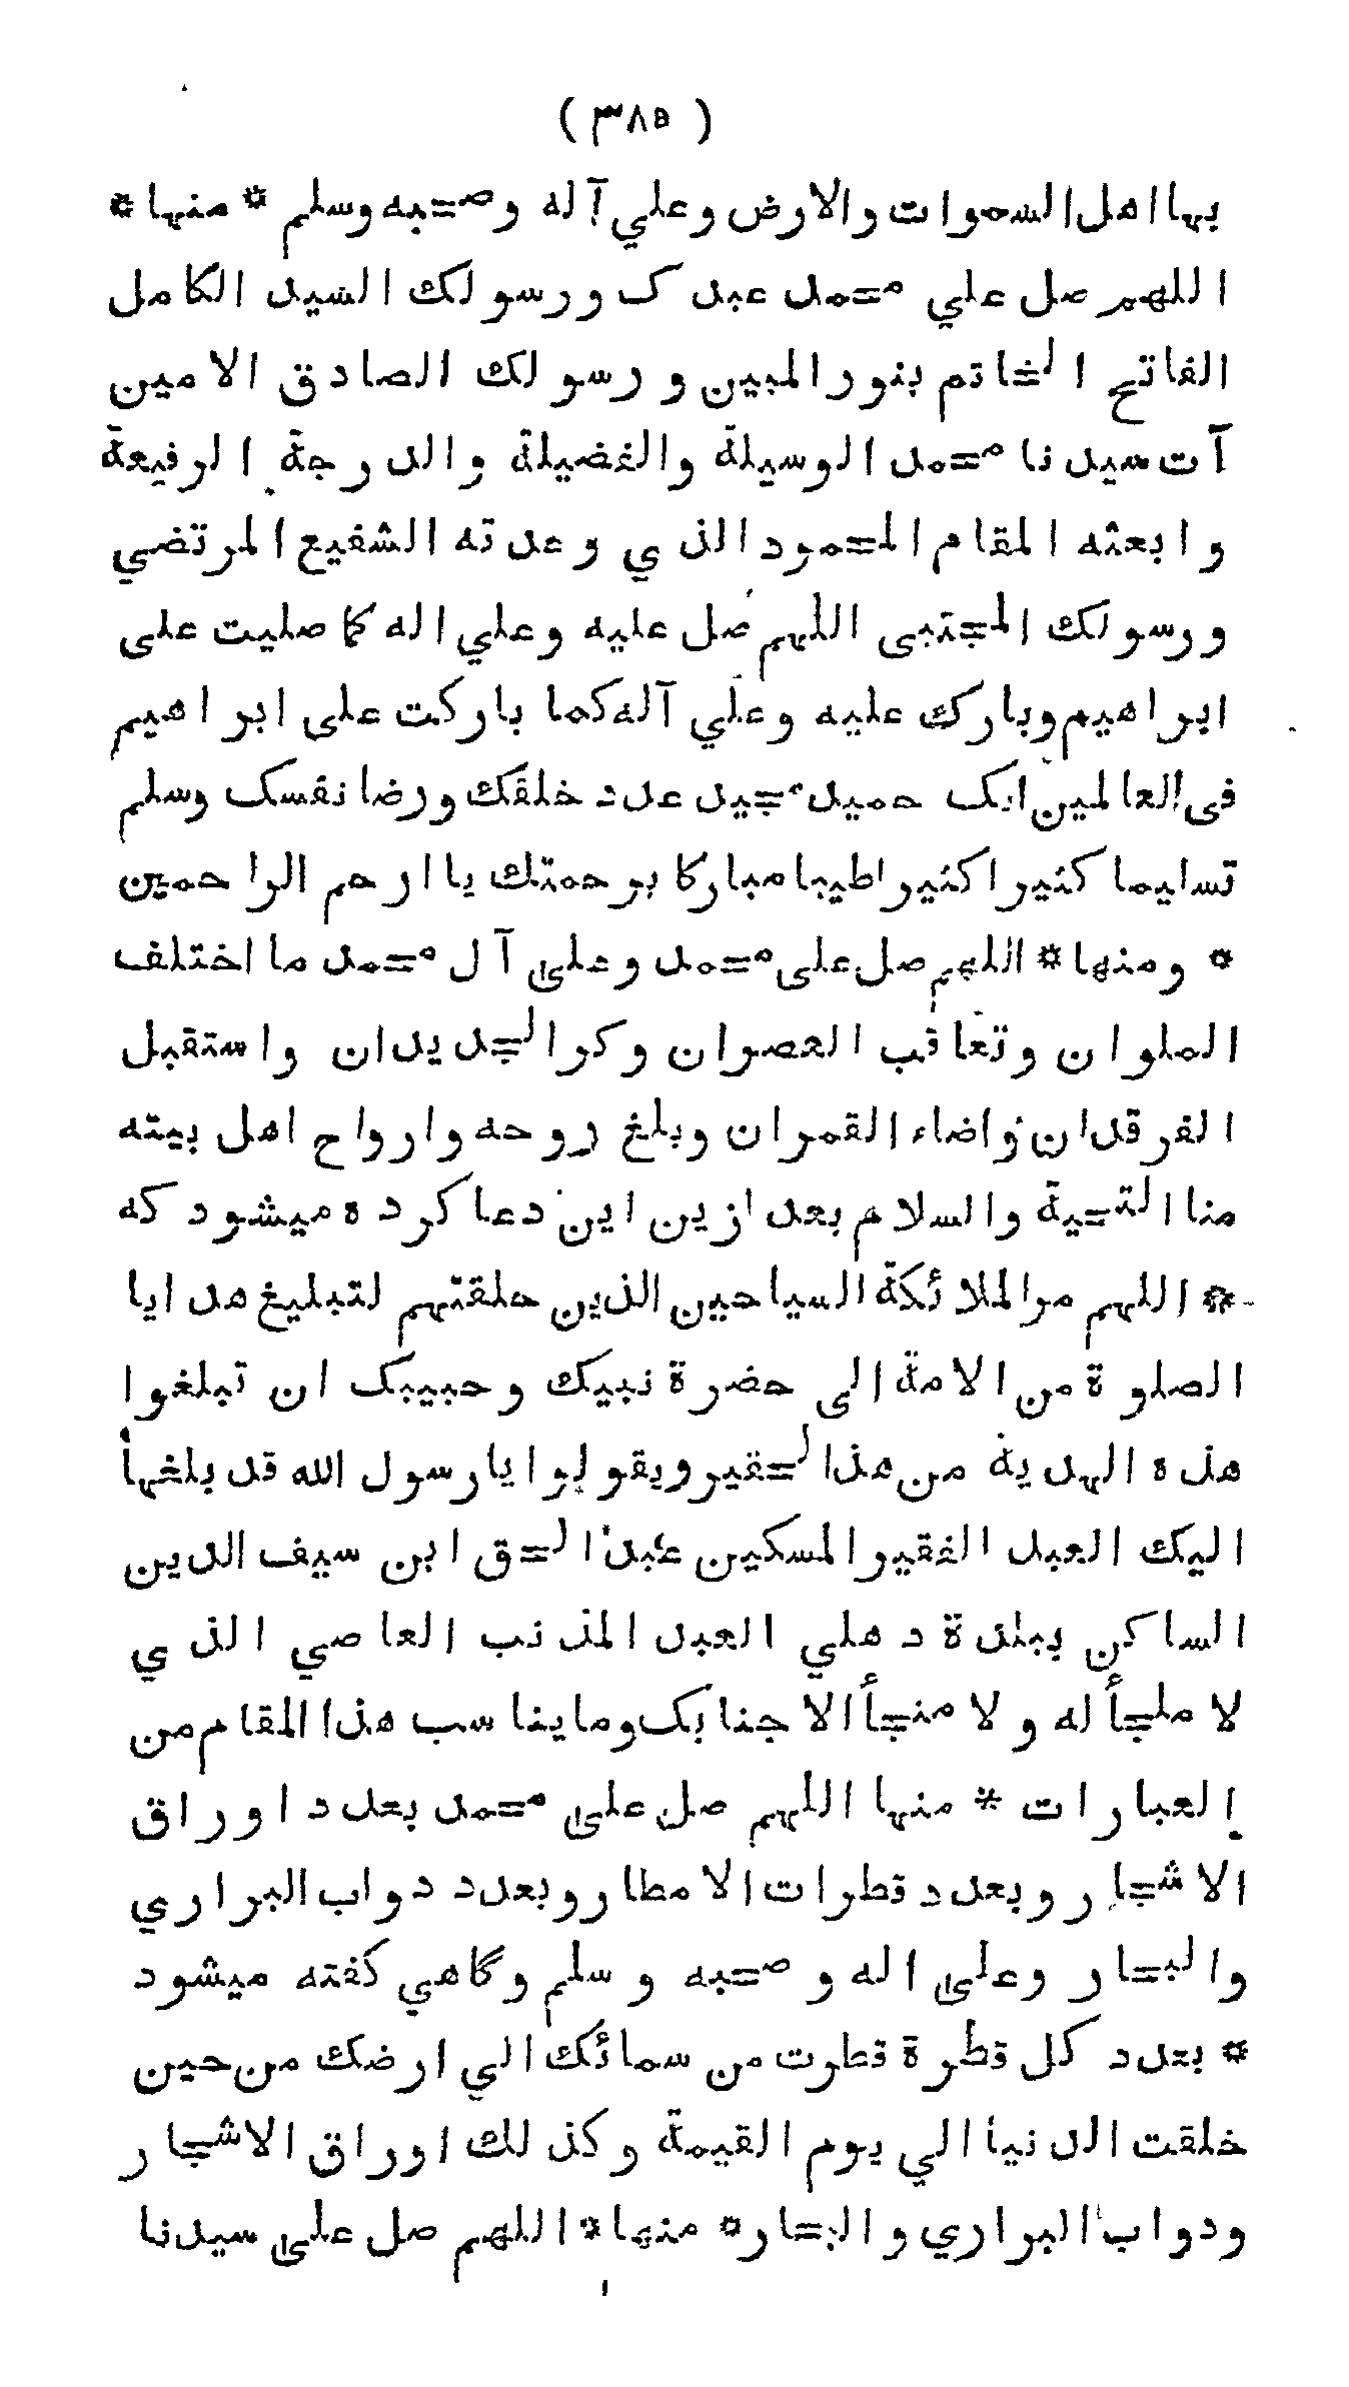 ( ٣٨٥ )
بها اهل السموات والارض وعلي آله وصحبه وسلم * منها *
اللهم صل علي محمد عبدك ورسولك السيد الكامل
الفاتح الخاتم بنور المبين ورسولك الصادق الامين
آت سيدنا محمد الوسيلة والفضيلة والدرجة الرفيعة
وابعثه المقام المحمود الذي وعدته الشفيع المرتضي
ورسولك المجتبى اللهم صل عليه وعلي اله كما صليت على
ابراهيم وبارك عليه وعلي آله كما باركت على ابراهيم
فى العالمين انك حميد مجيد عدد خلقك ورضا نفسك وسلم
تسليما كثيرا كثيرا طيبا مباركا برحمتك يا ارحم الراحمين
* ومنها * اللهم صل على محمد وعلى آل محمد ما اختلف
الملوان وتعاقب العصران وكر الجديدان واستقبل
الفرقدان واضاء القمران وبلغ روحه وارواح اهل بيته
منا التحية والسلام بعد ازين اين دعا كرده ميشود كه
* اللهم مر الملائكة السياحين الذين خلقتهم لتبليغ هدايا
الصلوة من الامة الى حضرة نبيك وحبيبك ان تبلغوا
هذه الهدية من هذا الحقير ويقولوا يا رسول الله قد بلغها
اليك العبد الفقير المسكين عبد الحق ابن سيف الدين
الساكن ببلدة دهلي العبد المذنب العاصي الذي
لا ملجأ له ولا منجأ الا جنابك وما يناسب هذا المقام من
العبارات * منها اللهم صل على محمد بعدد اوراق
الاشجار وبعدد قطرات الامطار وبعدد دواب البراري
والبحار وعلى اله وصحبه وسلم وگاهي گفته ميشود
* بعدد كل قطرة قطرت من سمائك الي ارضك من حين
خلقت الدنيا الي يوم القيمة وكذلك اوراق الاشجار
ودواب البراري والبحار * منها * اللهم صل على سيدنا